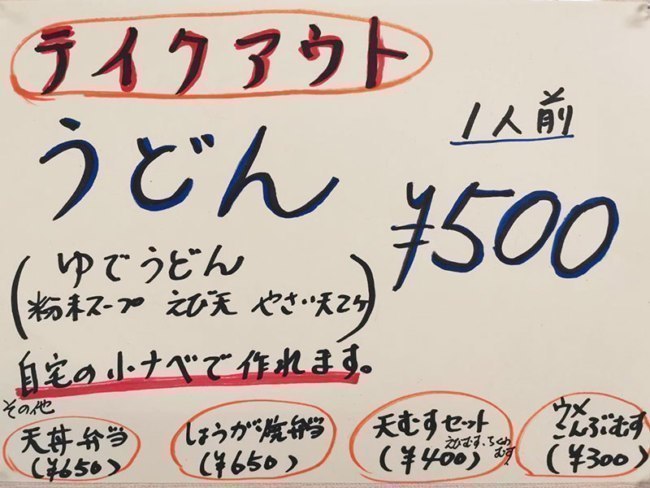 テイクアウト
うどん
1人前
¥500
(ゆでうどん
粉末スープ えび天 やさい天2ケ)
自宅の小ナベで作れます。
その他
天丼弁当
(¥650)
しょうが焼弁当
(¥650)
天むすセット
(¥400)
えびむす、
むす
ウメ
こんぶむす
(¥300)